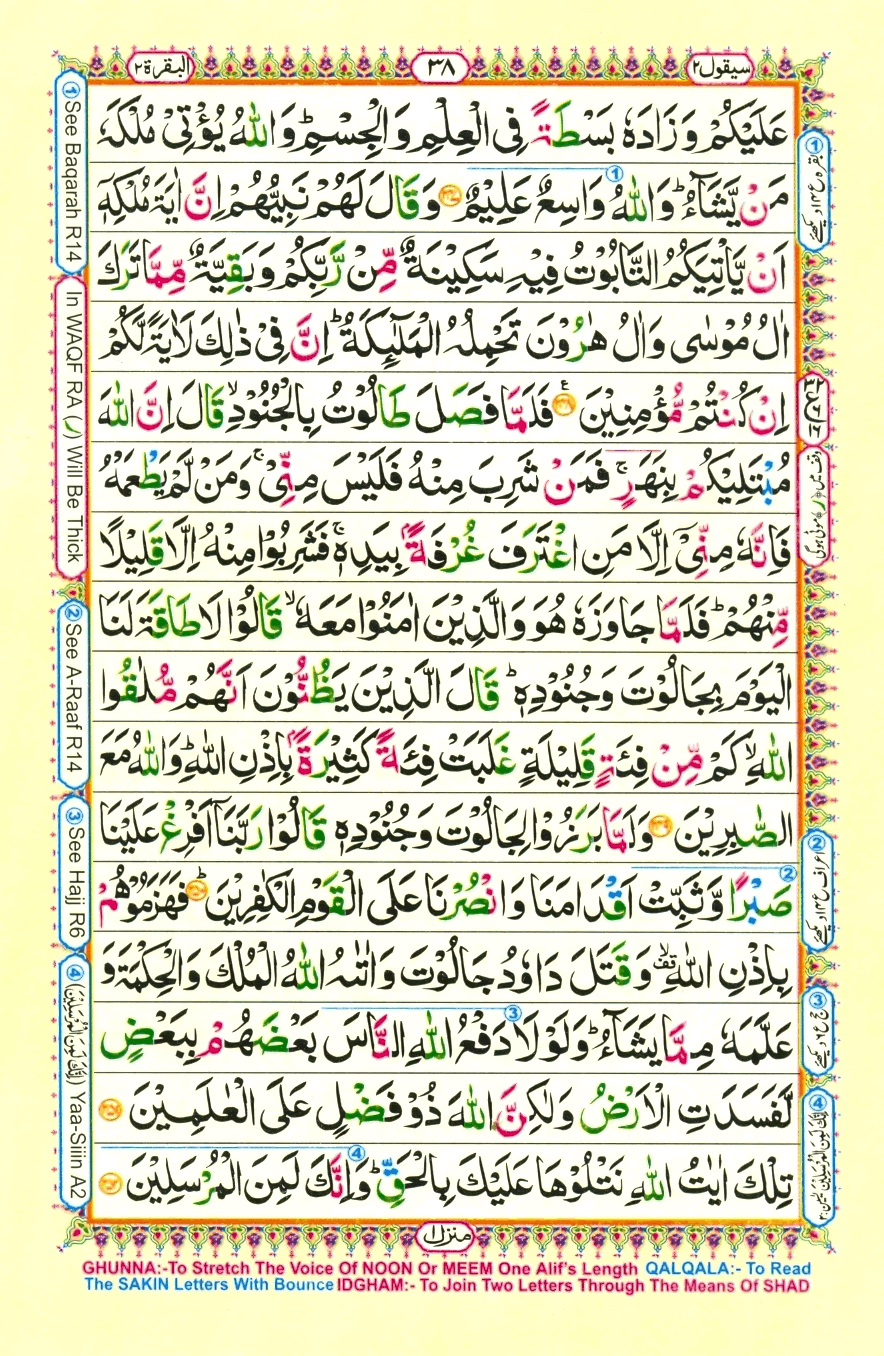 سيقول٢ ٣٨ البقرة٢
عَلَيْكُمْ وَزَادَهٗ بَسْطَةً فِى الْعِلْمِ وَالْجِسْمِ ؕ وَاللّٰهُ يُؤْتِىْ مُلْكَهٗ
مَنْ يَّشَآءُ ؕ وَاللّٰهُ وَاسِعٌ عَلِيْمٌ ﴿۲۴۷﴾ وَقَالَ لَهُمْ نَبِيُّهُمْ اِنَّ اٰيَةَ مُلْكِهٖۤ
اَنْ يَّاْتِيَكُمُ التَّابُوْتُ فِيْهِ سَكِيْنَةٌ مِّنْ رَّبِّكُمْ وَبَقِيَّةٌ مِّمَّا تَرَكَ
اٰلُ مُوْسٰى وَاٰلُ هٰرُوْنَ تَحْمِلُهُ الْمَلٰٓئِكَةُ ؕ اِنَّ فِىْ ذٰلِكَ لَاٰيَةً لَّكُمْ
اِنْ كُنْتُمْ مُّؤْمِنِيْنَ ﴿۲۴۸﴾ فَلَمَّا فَصَلَ طَالُوْتُ بِالْجُنُوْدِ ۙ قَالَ اِنَّ اللّٰهَ
مُبْتَلِيْكُمْ بِنَهَرٍ ۚ فَمَنْ شَرِبَ مِنْهُ فَلَيْسَ مِنِّىْ ۚ وَمَنْ لَّمْ يَطْعَمْهُ
فَاِنَّهٗ مِنِّىْۤ اِلَّا مَنِ اغْتَرَفَ غُرْفَةًۢ بِيَدِهٖ ۚ فَشَرِبُوْا مِنْهُ اِلَّا قَلِيْلًا
مِّنْهُمْ ؕ فَلَمَّا جَاوَزَهٗ هُوَ وَالَّذِيْنَ اٰمَنُوْا مَعَهٗ ۙ قَالُوْا لَا طَاقَةَ لَنَا
الْيَوْمَ بِجَالُوْتَ وَجُنُوْدِهٖ ؕ قَالَ الَّذِيْنَ يَظُنُّوْنَ اَنَّهُمْ مُّلٰقُوا
اللّٰهِ ۙ كَمْ مِّنْ فِئَةٍ قَلِيْلَةٍ غَلَبَتْ فِئَةً كَثِيْرَةًۢ بِاِذْنِ اللّٰهِ ؕ وَاللّٰهُ مَعَ
الصّٰبِرِيْنَ ﴿۲۴۹﴾ وَلَمَّا بَرَزُوْا لِجَالُوْتَ وَجُنُوْدِهٖ قَالُوْا رَبَّنَاۤ اَفْرِغْ عَلَيْنَا
صَبْرًا وَّثَبِّتْ اَقْدَامَنَا وَانْصُرْنَا عَلَى الْقَوْمِ الْكٰفِرِيْنَ ﴿۲۵۰﴾ ؕ فَهَزَمُوْهُمْ
بِاِذْنِ اللّٰهِ ۙ وَقَتَلَ دَاوٗدُ جَالُوْتَ وَاٰتٰىهُ اللّٰهُ الْمُلْكَ وَالْحِكْمَةَ وَ
عَلَّمَهٗ مِمَّا يَشَآءُ ؕ وَلَوْلَا دَفْعُ اللّٰهِ النَّاسَ بَعْضَهُمْ بِبَعْضٍ
لَّفَسَدَتِ الْاَرْضُ وَلٰكِنَّ اللّٰهَ ذُوْ فَضْلٍ عَلَى الْعٰلَمِيْنَ ﴿۲۵۱﴾
تِلْكَ اٰيٰتُ اللّٰهِ نَتْلُوْهَا عَلَيْكَ بِالْحَقِّ ؕ وَاِنَّكَ لَمِنَ الْمُرْسَلِيْنَ ﴿۲۵۲﴾
منزل١
① See Baqarah R14
In WAQF RA (ر) Will Be Thick
② See A-Raaf R14
③ See Hajj R6
④ (اِنَّكَ لَمِنَ الْمُرْسَلِيْنَ) Yaa-Siiin A2
GHUNNA:-To Stretch The Voice Of NOON Or MEEM One Alif's Length QALQALA:- To Read
The SAKIN Letters With Bounce IDGHAM:- To Join Two Letters Through The Means Of SHAD